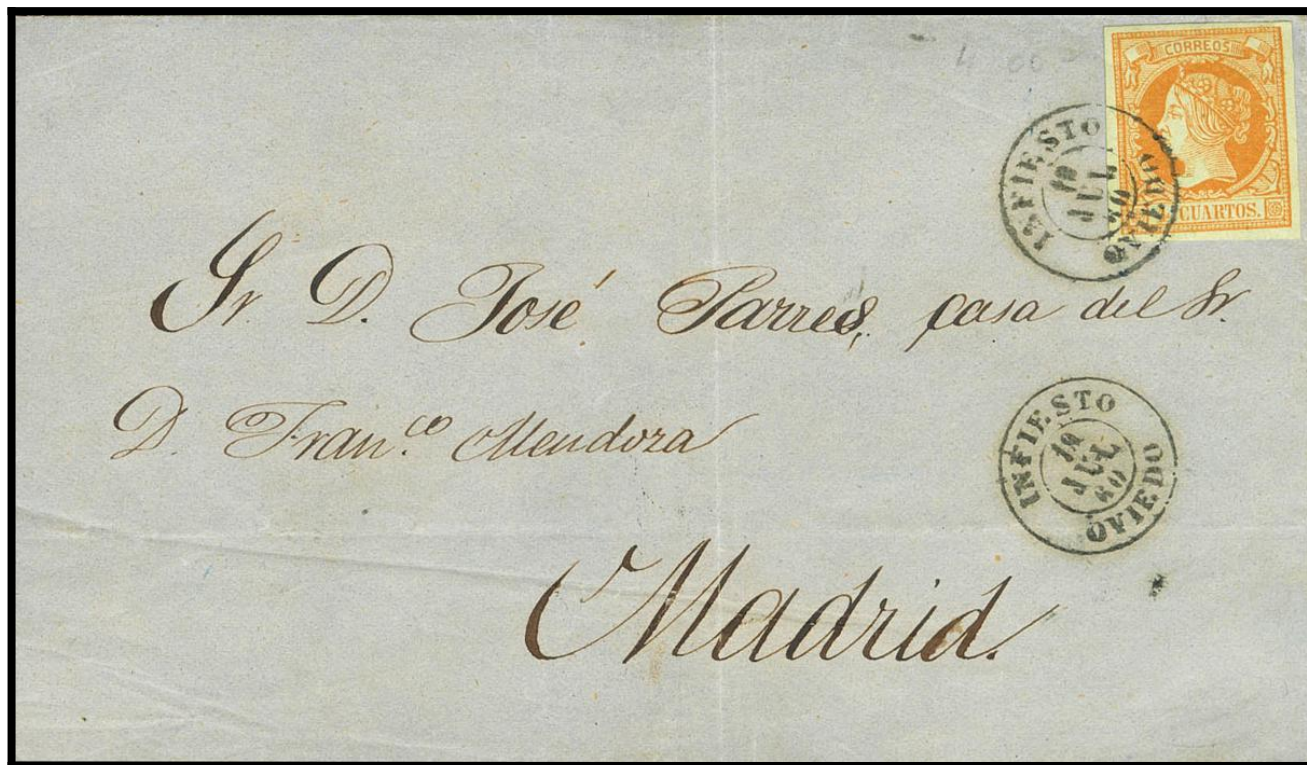 CORREOS
CUARTOS.
INFIESTO
10
JUL
60
OVIEDO
Sr. D. José Parres, casa del Sr.
D. Fran.co Mendoza
INFIESTO
10
JUL
60
OVIEDO
Madrid.